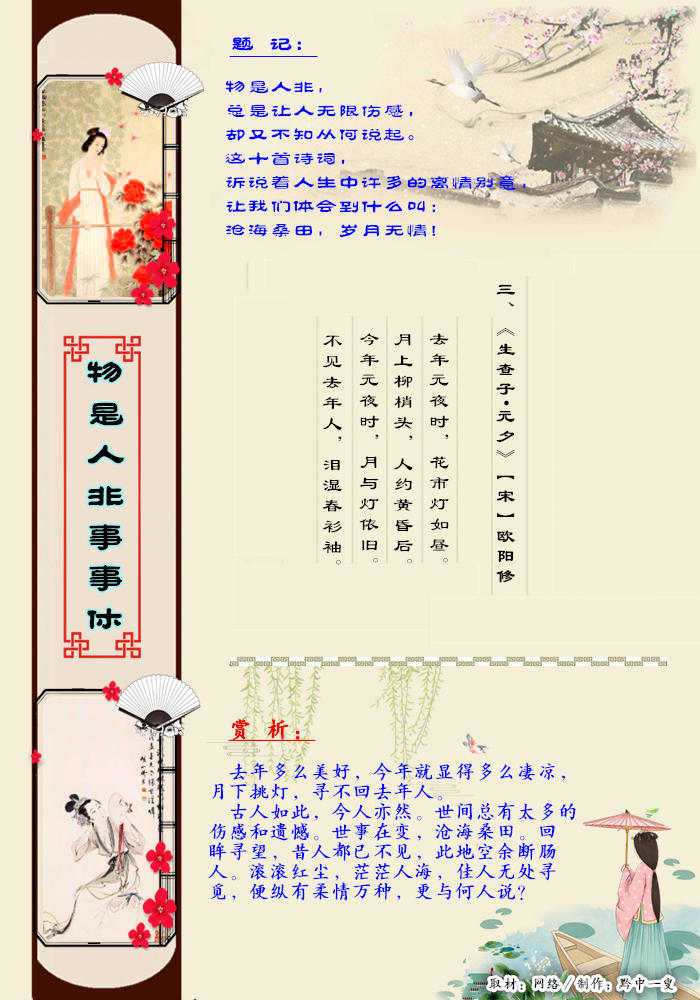 题 记：
物是人非，
总是让人无限伤感，
却又不知从何说起。
这十首诗词，
诉说着人生中许多的离情别意，
让我们体会到什么叫：
沧海桑田，岁月无情！
物是人非事事休
三、《生查子·元夕》【宋】欧阳修
去年元夜时，花市灯如昼。
月上柳梢头，人约黄昏后。
今年元夜时，月与灯依旧。
不见去年人，泪湿春衫袖。
赏 析：
去年多么美好，今年就显得多么凄凉，
月下挑灯，寻不回去年人。
古人如此，今人亦然。世间总有太多的
伤感和遗憾。世事在变，沧海桑田。回
眸寻望，昔人都已不见，此地空余断肠
人。滚滚红尘，茫茫人海，佳人无处寻
觅，便纵有柔情万种，更与何人说？
取材：网络／制作：黔中一叟